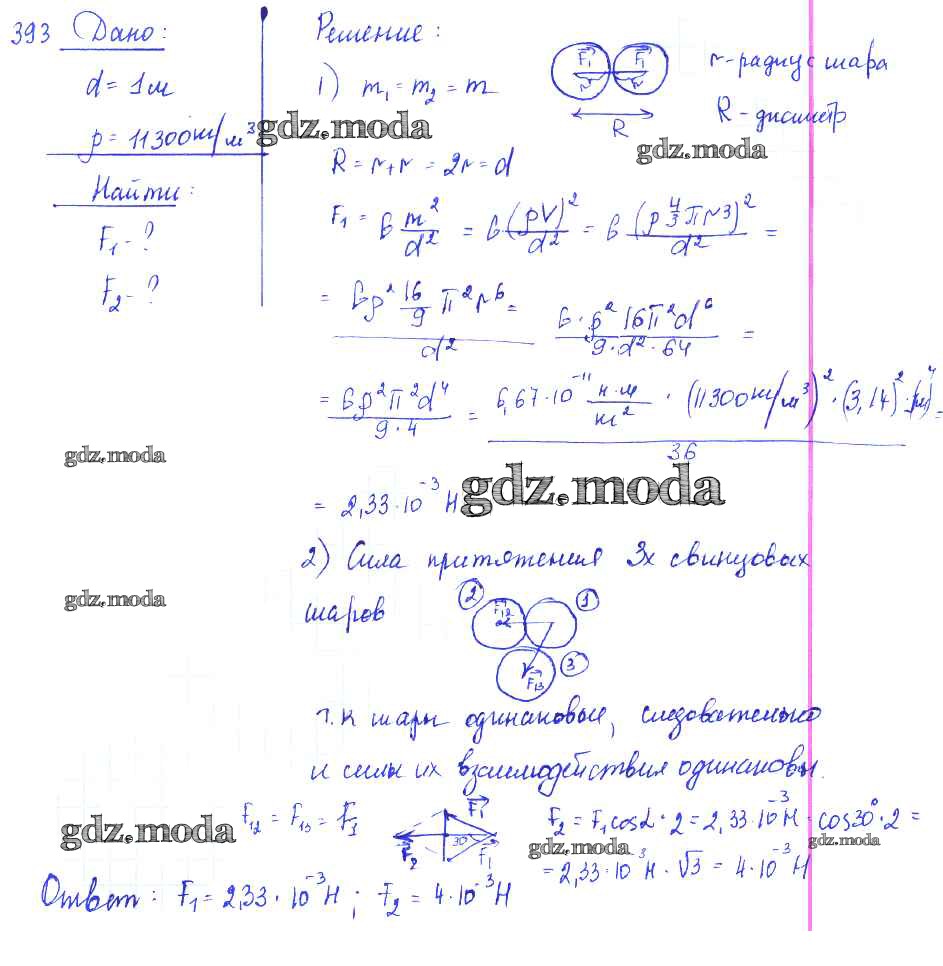 393 Дано:
d = 1м
ρ = 11300 кг/м³
Найти:
F₁ - ?
F₂ - ?
Решение:
1) m₁ = m₂ = m
F₁ F₁
r r
R
r - радиус шара
R - диаметр
gdz.moda
gdz.moda
R = r+r = 2r = d
F₁ = G m²/d² = G (ρV)²/d² = G (ρ 4/3 π r³)²/d² =
= Gρ² 16/9 π² r⁶ / d² = G·ρ² 16π²d⁶ / 9·d²·64 =
= Gρ²π²d⁴ / 9·4 = 6,67·10⁻¹¹ н·м/кг² · (11300 кг/м³)² · (3,14)² · (1м)⁴ / 36 =
gdz.moda
= 2,33·10⁻³ Н
gdz.moda
2) Сила притяжения 3х свинцовых
шаров
gdz.moda
2 F₁₂ 1
3 F₁₃
т.к шары одинаковые, следовательно
и силы их взаимодействия одинаковы.
F₁₂ = F₁₃ = F₁
gdz.moda
F₁ F₂ 30° F₁
F₂ = F₁cosα·2 = 2,33·10⁻³Н·cos30°·2 =
gdz.moda
gdz.moda
= 2,33·10⁻³Н·√3 = 4·10⁻³Н
Ответ: F₁ = 2,33·10⁻³Н; F₂ = 4·10⁻³Н